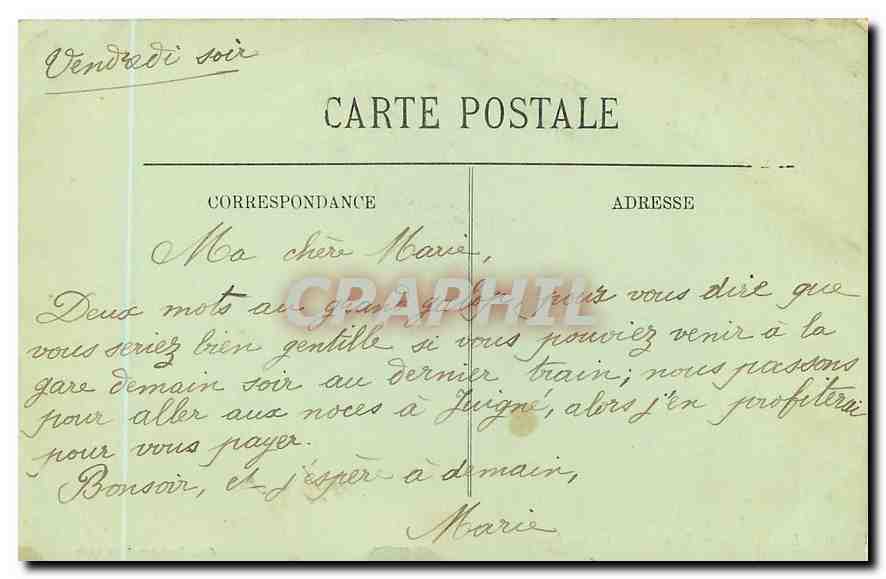 Vendredi soir
CARTE POSTALE
CORRESPONDANCE
ADRESSE
Ma chère Marie,
CRAPHIL
Deux mots au grand galop pour vous dire que
vous seriez bien gentille si vous pouviez venir à la
gare demain soir au dernier train; nous passons
pour aller aux noces à Juigné, alors j'en profiterai
pour vous payer.
Bonsoir, et j'espère à demain,
Marie